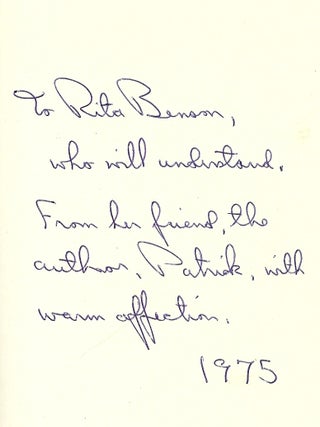 To Rita Benson,
who will understand.
From her friend, the
author, Patrick, with
warm affection.
1975